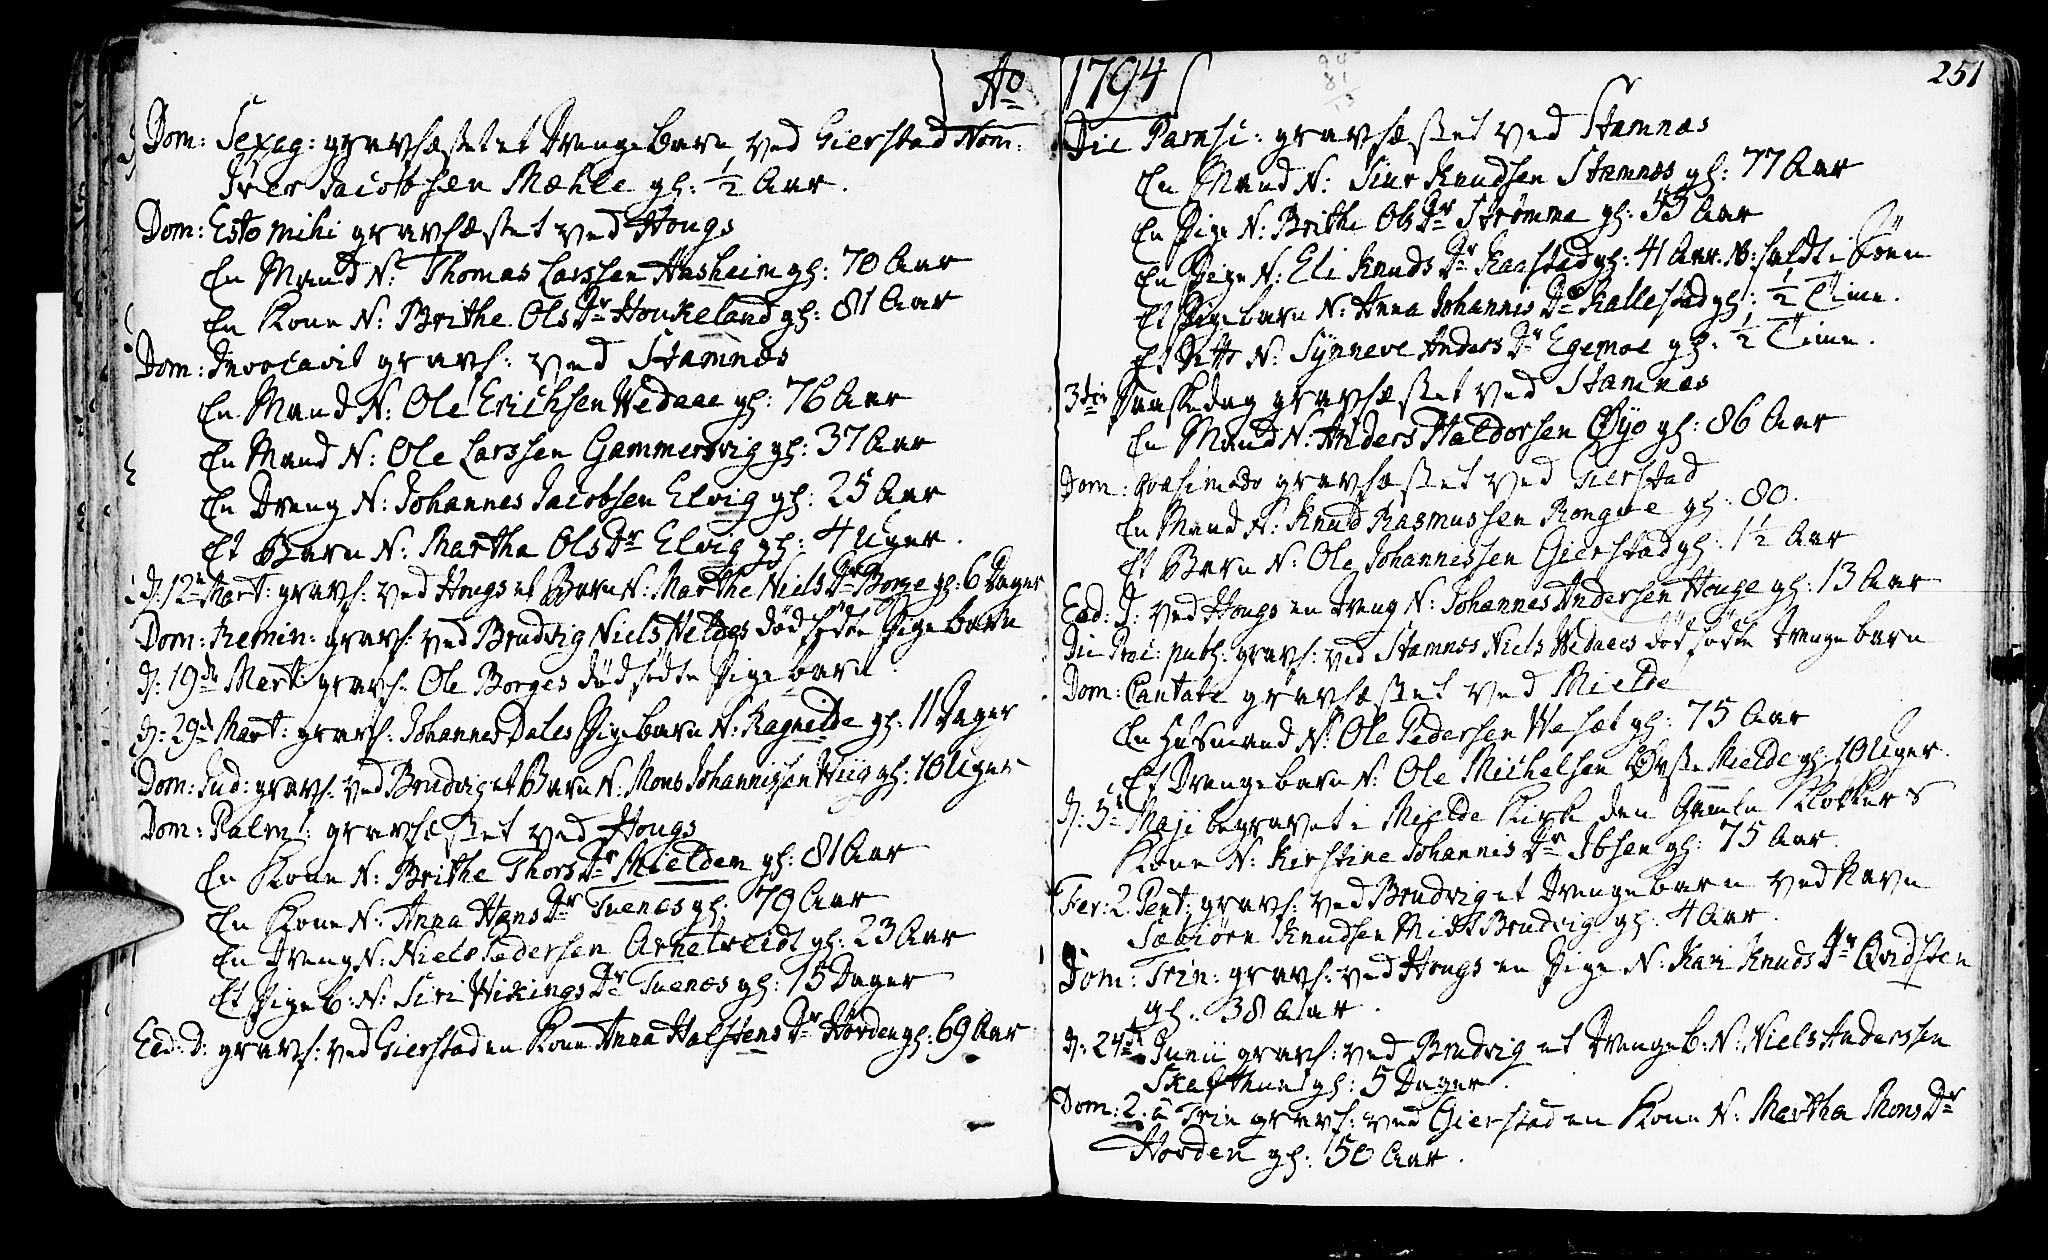 Ao 1794
251
94
81
13
Dom: Sexag: gravfæstet et Drengebarn ved Gierstad Nom:
Iver Jacobsen Mæhle gl: 1/2 Aar.
Dom: Esto mihi gravfæstet ved Hougs
En Mand N: Thomas Larssen Aasheim gl: 70 Aar
En Kone N: Brithe Ols Dr Houkeland gl: 81 Aar
Dom: Invocavit gravf: ved Stamnes
En Mand N: Ole Erichsen Wedaae gl: 76 Aar
En Mand N: Ole Larssen Gammersvig gl: 37 Aar
En Dreng N: Johannes Jacobsen Elvig gl: 25 Aar
Et Barn N: Martha Ols Dr Elvig gl: 4 Uger.
D: 12te Mart: gravf: ved Hougs et Barn N: Marthe Niels Dr Borge gl: 6 Dager
Dom: Remin: gravf: ved Brudvig Niels Veldes dødfødte Pigebarn
D: 19de Mart: gravf: Ole Borges dødfødte Pigebarn
D: 29de Mart: gravf: Johannes Dales Pigebarn N: Ragnilde gl: 11 Dager
Dom: Jud: gravf: ved Brudvig et Barn N: Mons Johannissen Wiig gl: 10 Uger
Dom: Palm: gravfæstet ved Hougs
En Kone N: Brithe Thors Dr Mieldem gl: 81 Aar
En Kone N: Anna Hans Dr Tuenæs gl: 79 Aar
En Dreng N: Niels Pedersen Arnetveidt gl: 23 Aar
Et Pigeb: N: Siri Wikings Dr Tuenæs gl: 15 Dager
Eod: D: gravf: ved Gierstad en Kone Anna Halstens Dr Horden gl: 69 Aar
Die Parasc: gravfæstet ved Stamnæs
En Mand N: Siur Knudsen Stamnæs gl: 77 Aar
En Pige N: Brithe Ols Dr Strømme gl: 55 Aar
En Pige N: Eli Knuds Dr Kaastad gl: 41 Aar. NB: faldt i Søen
Et Pigebarn N: Anna Johannis Dr Kallestad gl: 1/2 Time.
Et Ditto N: Synneve Anders Dr Egemoe gl: 1/2 Time.
3die Paaskedag gravfæstet ved Stamnæs
En Mand N: Anders Haldorsen Øyo gl: 86 Aar
Dom: Qvasimodo gravfæstet ved Gierstad
En Mand N: Knud Rasmussen Rongve gl: 80.
Et Barn N: Ole Johannissen Gierstad gl: 1 1/2 Aar
Eod: D: ved Hougs en Dreng N: Johannes Andersen Houge gl: 13 Aar
Die Prec: publ: gravf: ved Stamnes Niels Wedaaes dødfødte Drengebarn
Dom: Cantate gravfæstet ved Mielde
En Husmand N: Ole Pedersen Wasæt gl: 75 Aar
Et Drengebarn N: Ole Michelsen Øvste Mielde gl: 10 Uger.
D: 5te Maji begravet i Mielde Kirke den Gamle Klokkers
Kone N: Kirstine Johannis Dr Ibsen gl: 75 Aar.
Fer: 2. Pent: gravf: ved Brudvig et Drengebarn ved Navn
Sæbiørn Knudsen Midt Brudvig gl: 4 Aar.
Dom: Trin: gravf: ved Hougs en Pige N: Kari Knuds Dr Qvidsten
gl: 38 Aar.
D: 24de Junii gravf: ved Brudvig et Drengeb: N: Niels Anderssen
Skafthun gl: 5 Dager.
Dom: 2. a Trin gravf: ved Gierstad en Kone N: Martha Mons Dr
Horden gl: 50 Aar.